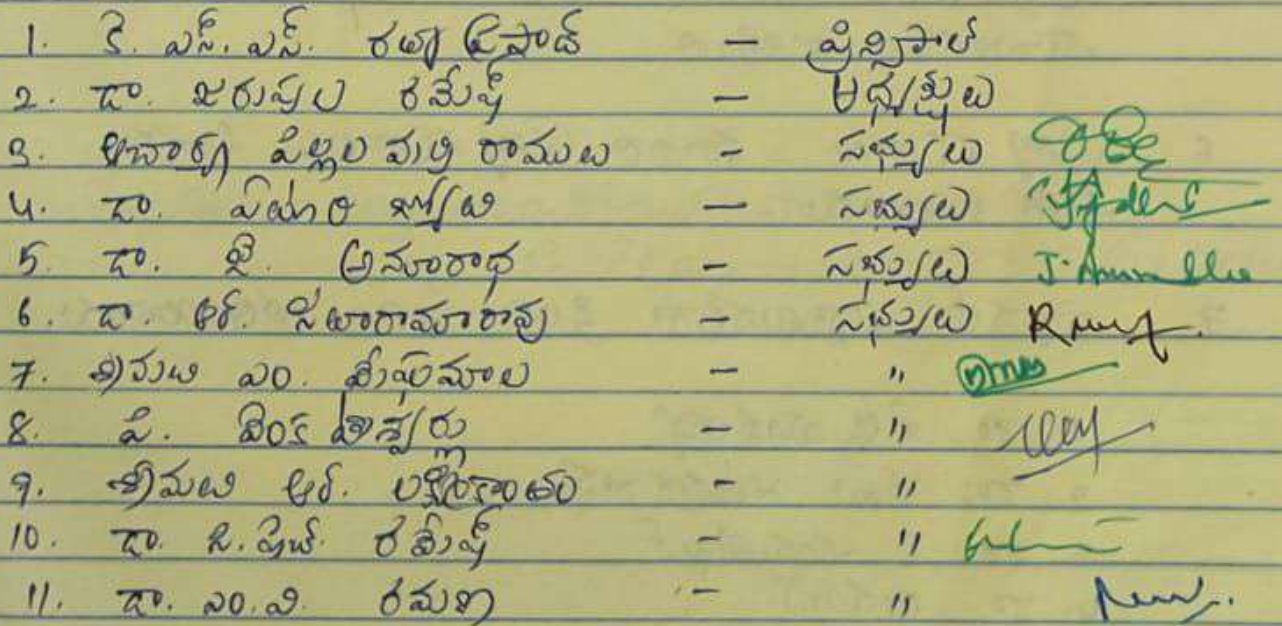 1. కె. ఎస్. ఎస్. రత్నప్రసాద్ - ప్రిన్సిపాల్
2. డా. జరుపుల రమేష్ - అధ్యక్షులు
3. ఆచార్య పిల్లల మర్రి రాములు - సభ్యులు
4. డా. జ్యోతి - సభ్యులు
5. డా. జె. అనూరాధ - సభ్యులు J. Anuradha
6. డా. ఆర్. సీతారామారావు - సభ్యులు
7. శ్రీమతి ఎం. శేషుమాల - "
8. పి. వెంకటేశ్వర్లు - "
9. శ్రీమతి ఆర్. లక్ష్మీకాంతం - "
10. డా. సి.హెచ్. రమేష్ - "
11. డా. ఎం.వి. రమణ - "